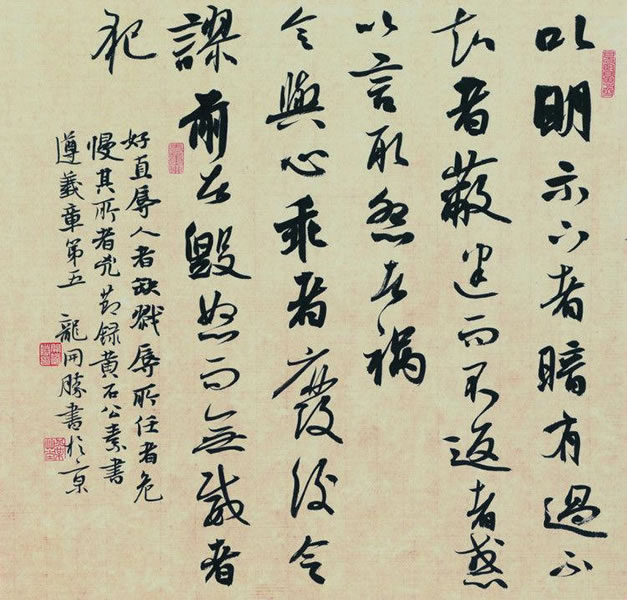 以明示下者暗有過不
知者蔽迷而不返者惑
以言取怨者禍
令與心乖者廢後令
謬前者毀怒而無威者
犯
好直辱人者殃戮辱所任者危
慢其所者兇節録黄石公素書
遵義章第五 龍開勝書於京